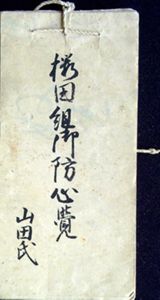 桜田御防心覚
山田氏